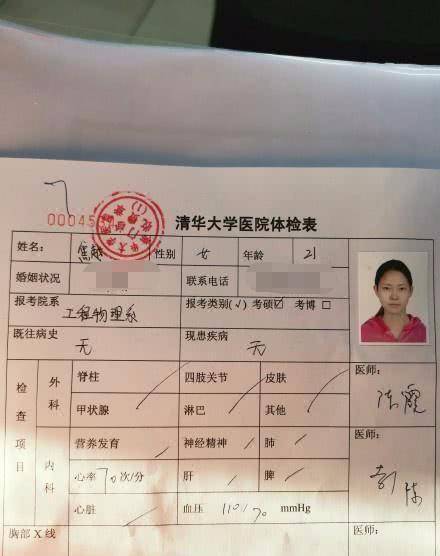 00045
清华大学医院体检表
姓名： 性别 女 年龄 21
婚姻状况 联系电话
报考院系 工程物理系 报考类别(√) 考硕☑ 考博□
既往病史 无 现患疾病 无
检查项目 外科 脊柱 四肢关节 皮肤 医师：
甲状腺 淋巴 其他 陈霞
内科 营养发育 神经精神 肺 医师：
心率 70 次/分 肝 脾
心脏 血压 110/70 mmHg
胸部 X 线 医师：